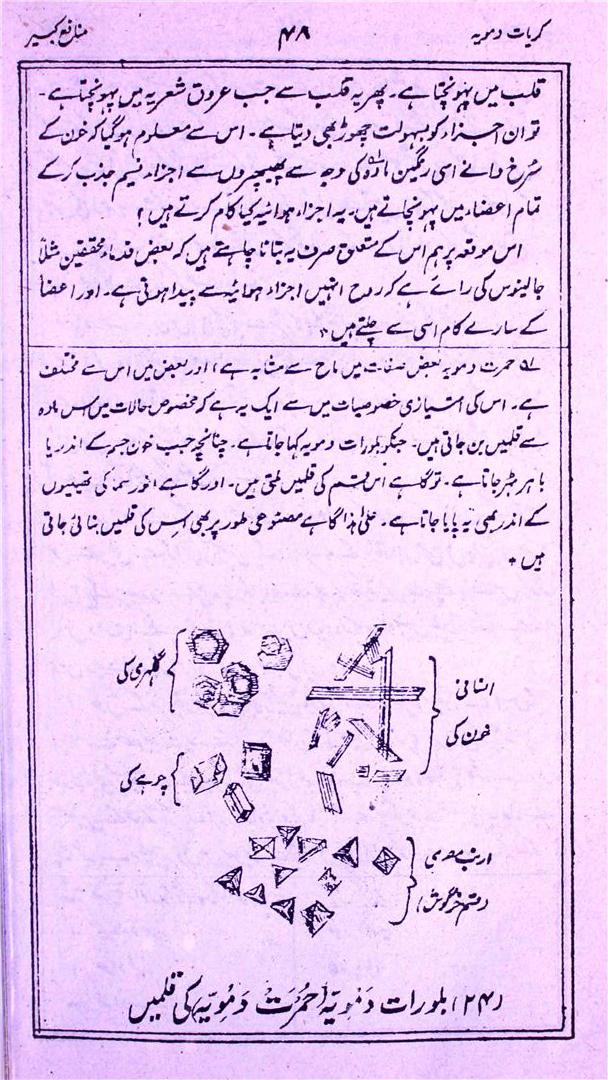 کریات دمویہ
۴۸
منافع کبیر
قلب میں پہونچتا ہے۔ پھر یہ قلب سے جب عروق شعریہ میں پہونچتا ہے۔
تو ان اجزاء کو بسہولت چھوڑ بھی دیتا ہے۔ اس سے معلوم ہو گیا کہ خون کے
سرخ دانے اسی رنگین مادہ کی وجہ سے پھیپھڑوں سے اجزاء نسیم جذب کر کے
تمام اعضاء میں پہونچاتے ہیں۔ یہ اجزاء ہوائیہ کیا کام کرتے ہیں؟
اس موقعہ پر ہم اس کے متعلق صرف یہ بتانا چاہتے ہیں کہ بعض قدماء محققین مثلاً
جالینوس کی رائے ہے کہ روح انہیں اجزاء ہوائیہ سے پیدا ہوتی ہے۔ اور اعضا
کے سارے کام اسی سے چلتے ہیں ٭
لہ حمرت دمویہ بعض صفات میں ماح سے مشابہ ہے، اور بعض میں اس سے مختلف
ہے۔ اس کی امتیازی خصوصیات میں سے ایک یہ ہے کہ مخصوص حالات میں اس مادہ
سے قلمیں بن جاتی ہیں۔ جنکو بلورات دمویہ کہا جاتا ہے۔ چنانچہ جب خون جسم کے اندر یا
باہر ٹہر جاتا ہے۔ تو گاہے اس قسم کی قلمیں ملتی ہیں۔ اور گاہے کی تھیلیوں
کے اندر بھی یہ پایا جاتا ہے۔ علیٰ ہذا گاہے مصنوعی طور پر بھی اس کی قلمیں بنائی جاتی
ہیں ٭
انسانی
خون کی
گلہری کی
چوہے کی
ارنب مصری
(قسم خرگوش)
(۲۴) بلورات دَمْوِیَّہ (حُمْرَتْ دَمْوِیَّہ) کی قلمیں